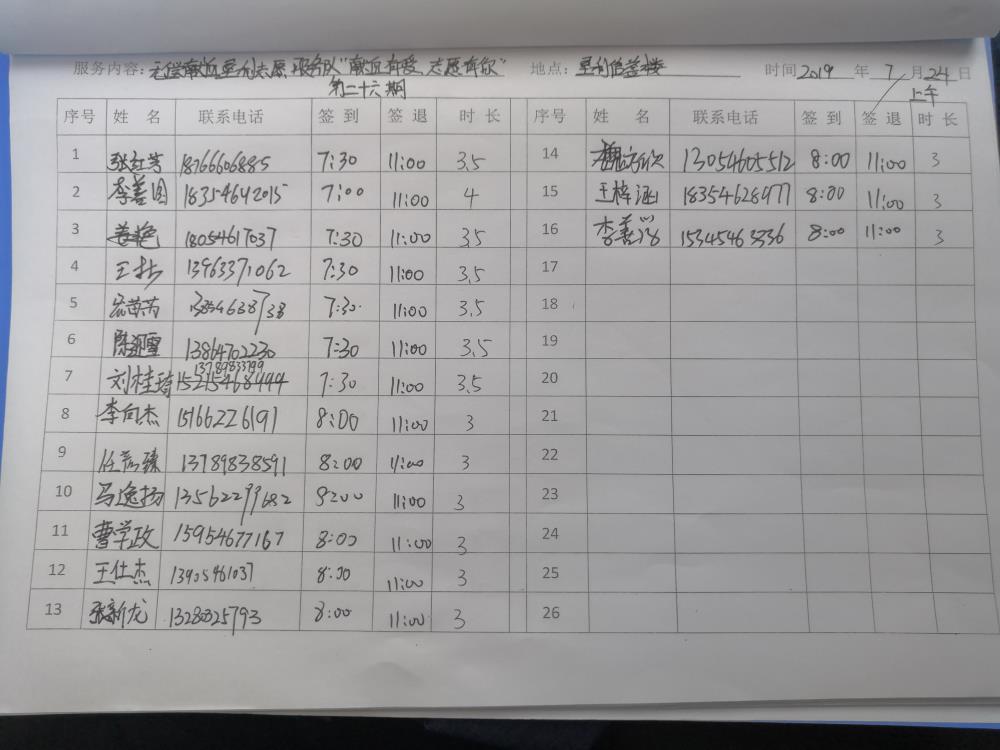 服务内容:无偿献血垦利志愿服务队"献血有爱,志愿有你" 地点:垦利信誉楼 时间 2019 年 7 月 24 日
第二十六期 上午
序号 姓名 联系电话 签到 签退 时长 序号 姓名 联系电话 签到 签退 时长
1 张红芳 18766606885 7:30 11:00 3.5 14 13054605512 8:00 11:00 3
2 李善国 18354642015 7:00 11:00 4 15 王梓涵 18354628977 8:00 11:00 3
3 姜艳 18054617037 7:30 11:00 3.5 16 李善 15345463336 8:00 11:00 3
4 王 13963371062 7:30 11:00 3.5 17
5 7:30 11:00 3.5 18
6 陈迎雪 13864702230 7:30 11:00 3.5 19
13789833799
7 刘桂琦 15215468494 7:30 11:00 3.5 20
8 李向杰 15166226191 8:00 11:00 3 21
9 任 臻 13789838591 8:00 11:00 3 22
10 马逸扬 13562299682 8:00 11:00 3 23
11 曹学政 15954677167 8:00 11:00 3 24
12 王仕杰 13905461037 8:00 11:00 3 25
13 张新龙 8:00 11:00 3 26